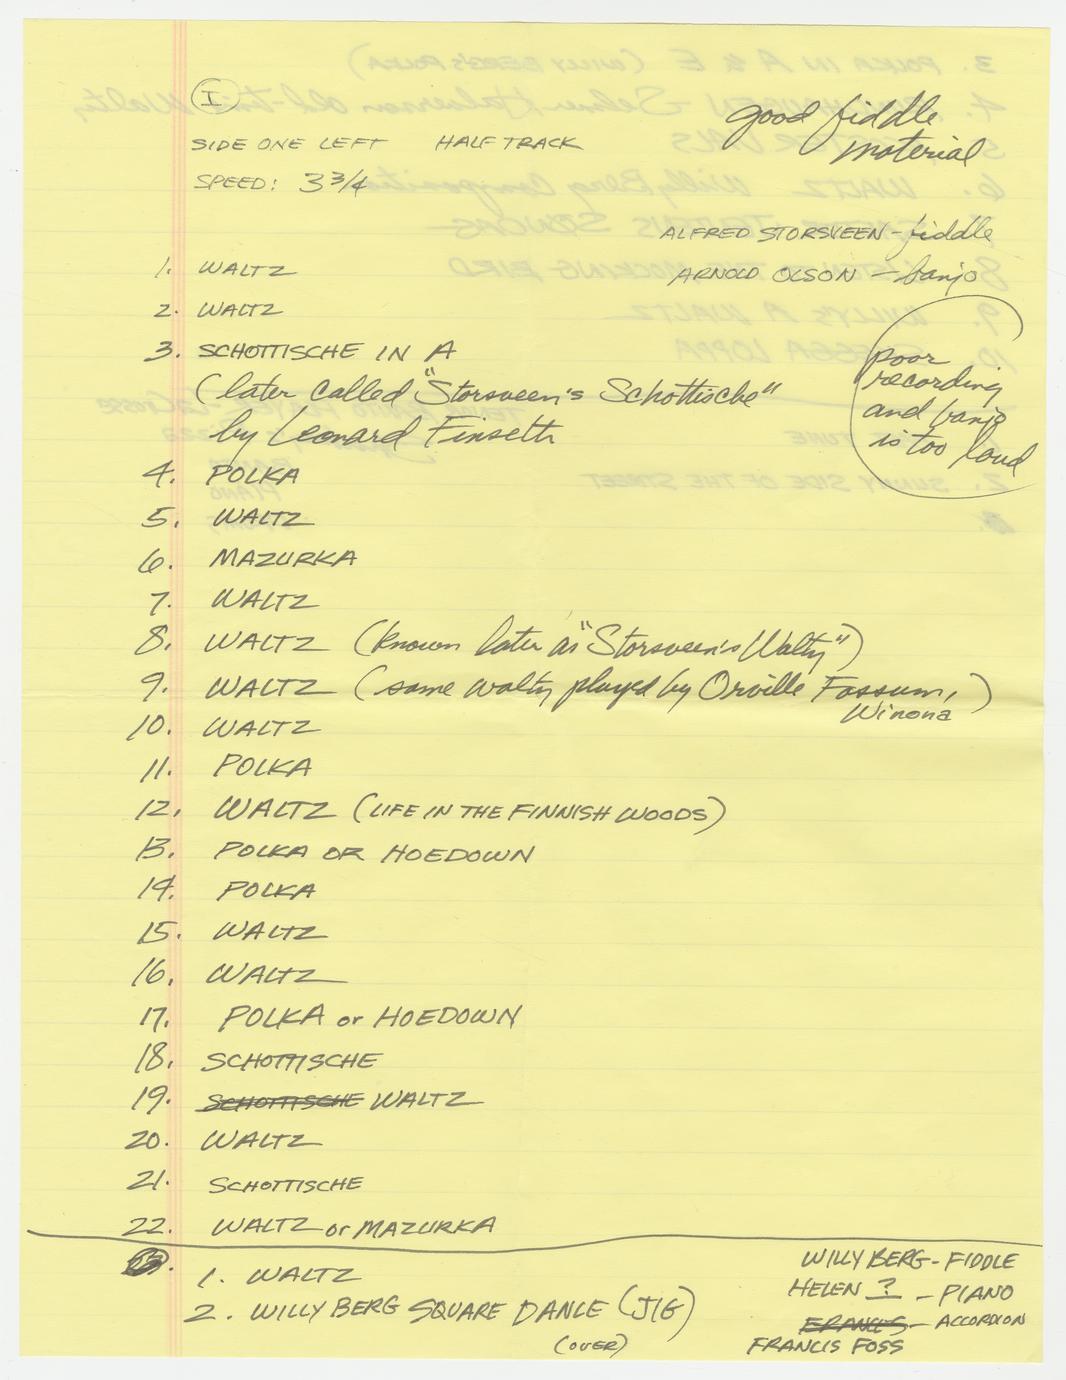 I
good fiddle
material
SIDE ONE LEFT HALF TRACK
SPEED: 3 3/4
ALFRED STORSVEEN - fiddle
ARNOLD OLSON - banjo
1. WALTZ
2. WALTZ
3. SCHOTTISCHE IN A
(later called "Storsveen's Schottische"
by Leonard Finseth
poor
recording
and banjo
is too loud
4. POLKA
5. WALTZ
6. MAZURKA
7. WALTZ
8. WALTZ (known later as "Storsveen's Waltz")
9. WALTZ (same waltz played by Orville Fossum,)
Winona
10. WALTZ
11. POLKA
12. WALTZ (LIFE IN THE FINNISH WOODS)
13. POLKA OR HOEDOWN
14. POLKA
15. WALTZ
16. WALTZ
17. POLKA or HOEDOWN
18. SCHOTTISCHE
19. SCHOTTISCHE WALTZ
20. WALTZ
21. SCHOTTISCHE
22. WALTZ or MAZURKA
23.
1. WALTZ
2. WILLY BERG SQUARE DANCE (JIG)
(over)
WILLY BERG - FIDDLE
HELEN ? - PIANO
FRANCES - ACCORDION
FRANCIS FOSS